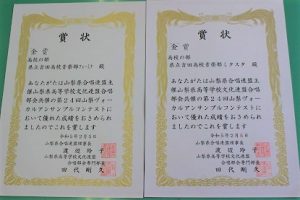 賞状
金賞
高校の部
県立吉田高校音楽部フォーミナ 殿
あなたがたは山梨県合唱連盟主
催山梨県高等学校文化連盟合唱
部会共催の第24回山梨ヴォー
カルアンサンブルコンテストに
おいて優れた成績をおさめられ
ましたのでこれを賞します
山梨県合唱連盟理事長
渡辺玲子
山梨県高等学校文化連盟
合唱部会専門部長
田代剛久
賞状
金賞
高校の部
県立吉田高校音楽部ミクスタ 殿
あなたがたは山梨県合唱連盟主
催山梨県高等学校文化連盟合唱
部会共催の第24回山梨ヴォー
カルアンサンブルコンテストに
おいて優れた成績をおさめられ
ましたのでこれを賞します
山梨県合唱連盟理事長
渡辺玲子
山梨県高等学校文化連盟
合唱部会専門部長
田代剛久